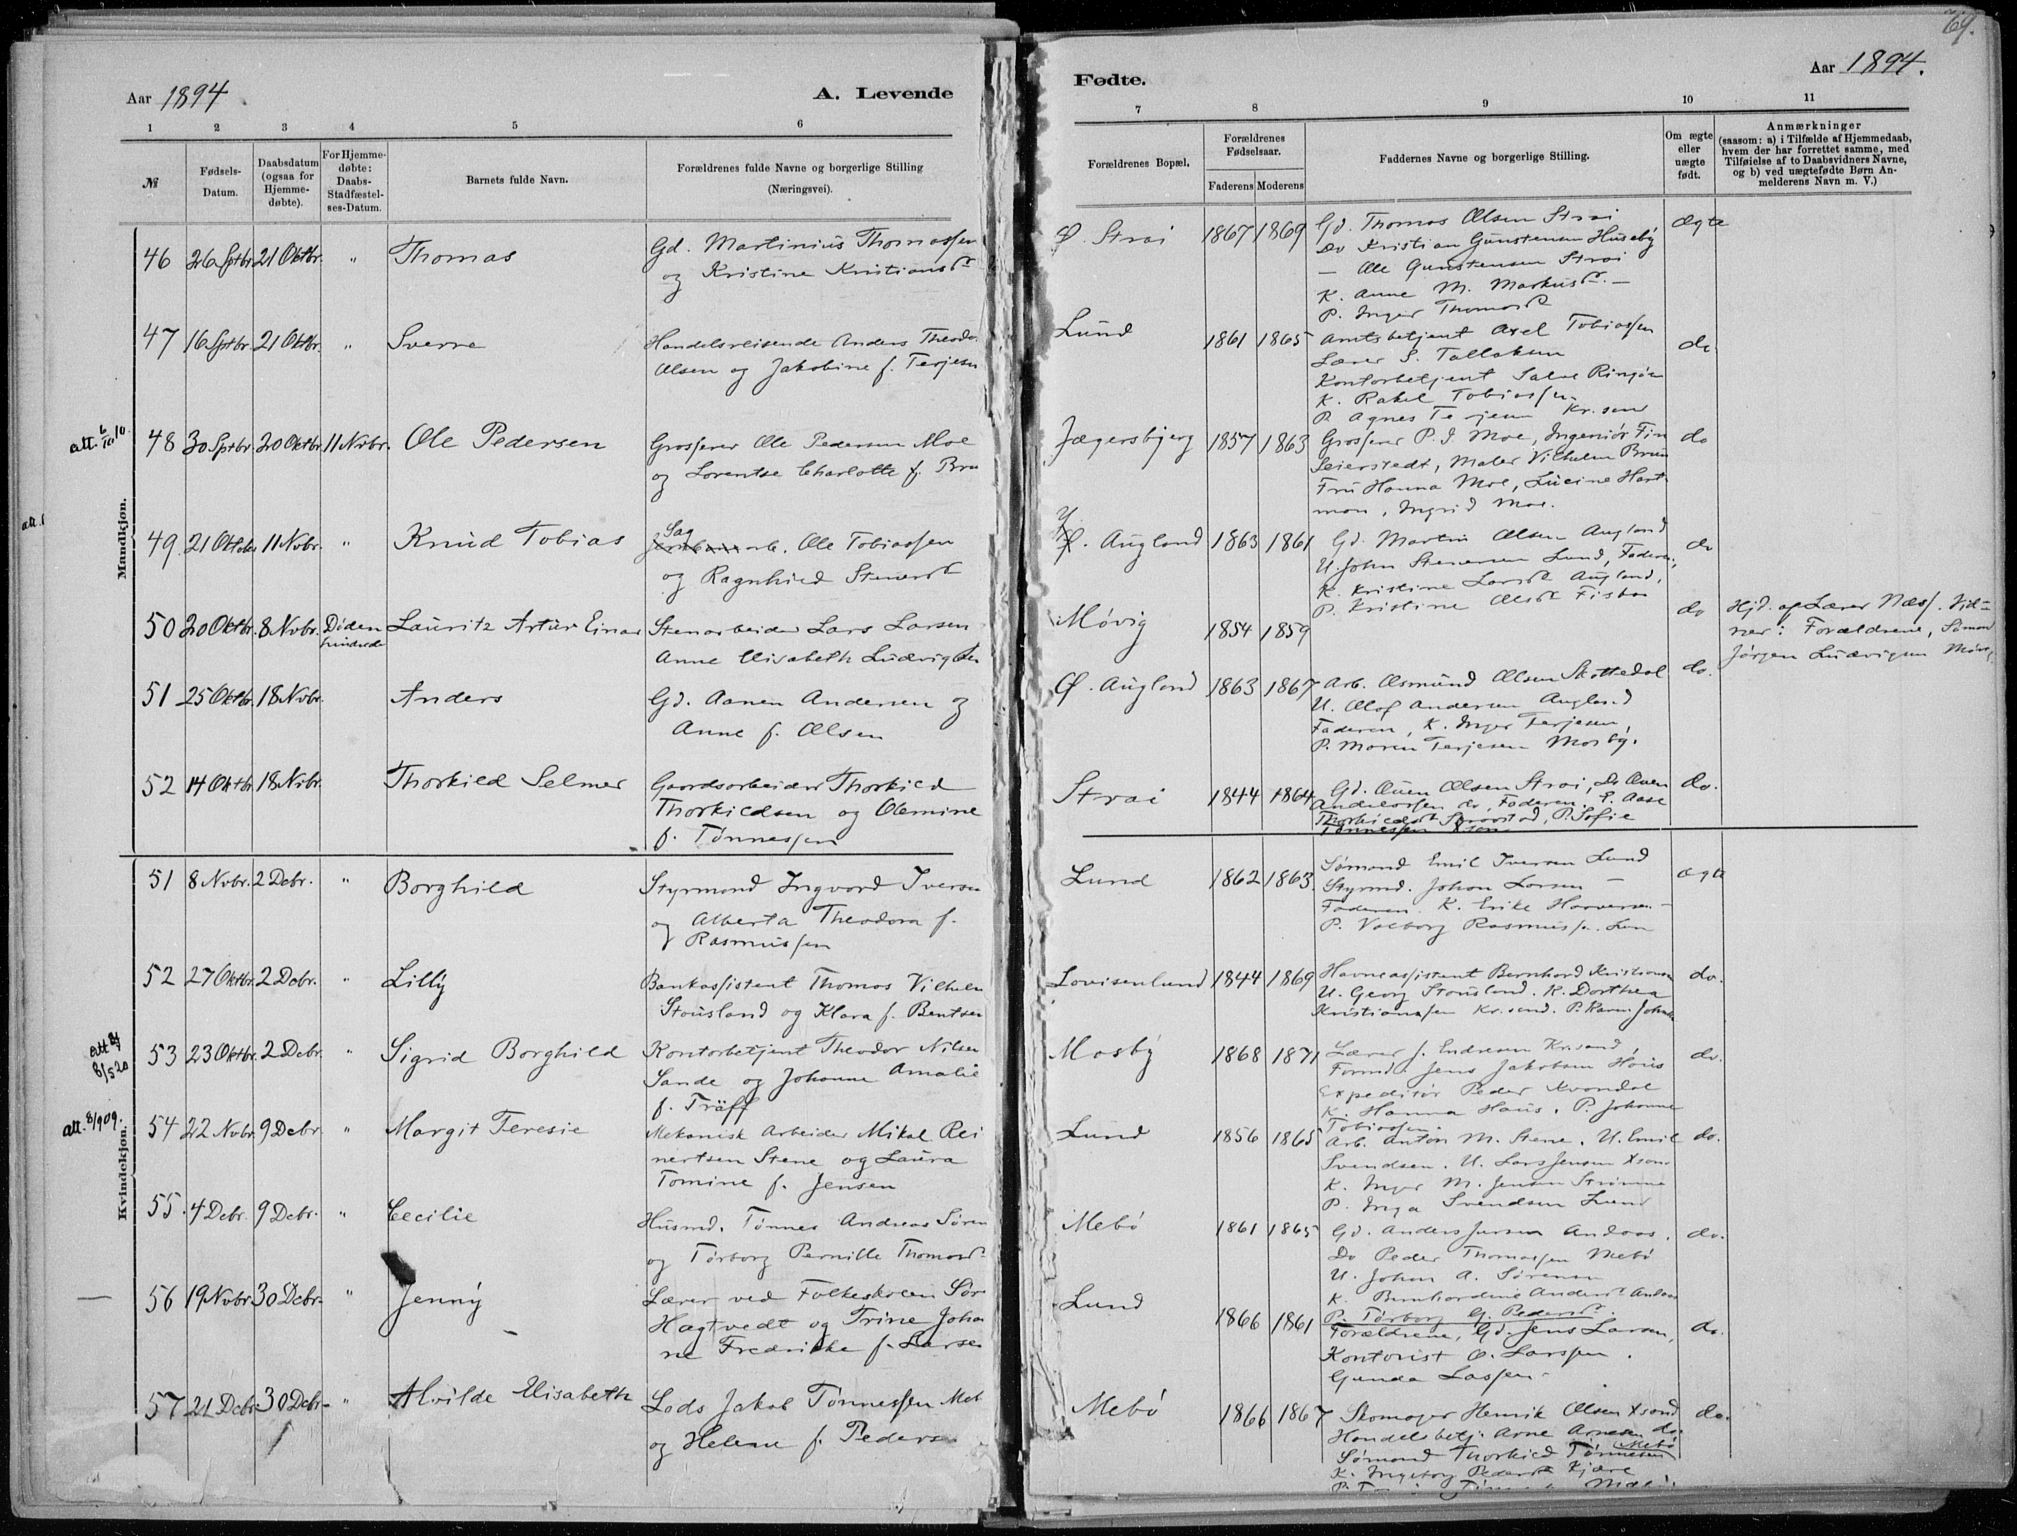 69.
Aar 1894
A. Levende
Fødte.
Aar 1894.
1 2 3 4 5 6
7 8 9 10 11
№
Fødsels-
Datum.
Daabsdatum
(ogsaa for
Hjemme-
døbte).
For Hjemme-
døbte:
Daabs-
Stadfæstel-
ses-Datum.
Barnets fulde Navn.
Forældrenes fulde Navne og borgerlige Stilling
(Næringsvei).
Forældrenes Bopæl.
Forældrenes
Fødselsaar.
Faderens Moderens
Faddernes Navne og borgerlige Stilling.
Om ægte
eller
uægte
født.
Anmærkninger
(saasom: a) i Tilfælde af Hjemmedaab,
hvem der har forrettet samme, med
Tilføielse af to Daabsvidners Navne,
og b) ved uægtefødte Børn An-
melderens Navn m. V.)
Mandkjøn.
46 26 Sptbr. 21 Oktbr. " Thomas
Gd. Martinius Thomassen
og Kristine Kristiansd.
Ø. Strai 1867 1869
Gd. Thomas Olsen Strai
Do Kristian Gunstensen Husebÿ
— Ole Gunstensen Strai
K. Anne M. Markusd. —
P. Inger Thomasd.
ægte
47 16 Sptbr. 21 Oktbr. " Sverre
Handelsreisende Anders Theodor
Olsen og Jakobine f. Terjesen
Lund 1861 1865
Amtsbetjent Axel Tobiassen
Lærer S. Tallaksen
Kontorbetjent Salve Ringøen
K. Rakel Tobiassen
P. Agnes Terjesen Kr.sand
do.
att. 6/10 10.
48 30 Sptbr. 20 Oktbr. 11 Nvbr. Ole Pedersen
Grosserer Ole Pedersen Moe
og Lorentse Charlotte f. Bru
Jægersbjerg 1857 1863
Grosserer P. J. Moe, Ingeniør Fin
Seierstedt, Maler Vilhelm Bruun
Fru Hanna Moe, Lucine Hart-
man, Ingrid Moe.
do
49. 21 Oktober 11 Nvbr. " Knud Tobias
Sag
arb. Ole Tobiassen
og Ragnhild Stenersd.
Augland 1863 1861
Gd. Martin Olsen Augland
U. John Stenersen Lund, Faderen,
K. Kristine Larsd. Augland,
P. Kristine Olsd. Fiskaa
do
50 20 Oktbr. 8 Nvbr. Døden
hindrede
Lauritz Artur Einar
Stenarbeider Lars Larsen
Anne Elisabeth Ludvigsen
Møvig 1854 1859
do
Hjd. af Lærer Næss. Vid-
ner: Forældrene, Sømand
Jørgen Ludvigsen Møvig
51 25 Oktbr. 18 Nvbr. Anders
Gd. Aanen Andersen og
Anne f. Olsen
Ø. Augland 1863 1867
Arb. Asmund Olsen Skottedal
U. Olaf Andersen Augland
Faderen, K. Inger Terjesen,
P. Maren Terjesen Mosbÿ.
do.
52 14 Oktbr. 18 Nvbr. Thorkild Selmer
Gaardsarbeider Thorkild
Thorkildsen og Olemine
f. Tønnessen
Strai 1844 1864
Gd. Ouen Olsen Strai, Do Ouen
Andreassen do, Faderen. K. Aase
Thorkildsd. P. Sofie
Tønnessen Xsand
do.
Kvindekjøn.
51 8 Nvbr. 2 Debr. " Borghild
Styrmand Ingvard Iversen
og Alberta Theodora f.
Rasmussen
Lund 1862 1863.
Sømand Emil Iversen Lund
Styrmd. Johan Larsen —
Faderen. K. Erike Halvorsen —
P. Valborg Rasmussen. Lun
ægte
52 27 Oktbr. 2 Debr. " Lillÿ
Bankassistent Thomas Vilhelm
Stousland og Klara f. Bentsen
Lovisenlund 1844 1869
Havneassistent Bernhard Kristiansen
U. Georg Stousland. K. Dorthea
Kristiansen Kr.sand. P. Karen Johnsen
do.
att 8/5 20
53 23 Oktbr. 2 Debr. " Sigrid Borghild
Kontorbetjent Theodor Nilsen
Sande og Johanne Amalie
f. Träff
Mosbÿ 1868 1871
Lærer J. Endresen Kr.sand,
Formd. Jens Jakobsen Haus
Expeditør Peder Kvandal
K. Hanna Haus. P. Johanne
Tobiassen.
do.
att. 8/9 09.
54 22 Nvbr. 9 Debr. " Margit Teresie
Mekanisk Arbeider Mikal Rei
nertsen Stene og Laura
Tomine f. Jensen
Lund 1856 1865
Arb. Anton M. Stene. U. Emil
Svendsen. U. Lars Jensen Xsand
K. Inger M. Jensen Strømme
P. Inga Svendsen Lund
do.
55. 4 Debr. 9 Debr. " Cecilie
Husmd. Tønnes Andreas Søren
og Tørborg Pernille Thomasd.
Mebø 1861 1865
Gd. Anders Jensen Andaas.
Do Peder Thomassen Mebø
U. Johan A. Sørensen
K. Bernhardine Andersd. Andaas
P. Tørborg G. Pedersd.
do.
56 19 Nvbr. 30 Debr. " Jennÿ
Lærer ved Folkeskolen Sør
Hagtvedt og Trine Joha
ne Fredrikke f. Larsen
Lund 1866 1861
Forældrene, Gd. Jens Larsen,
Kontorist O. Larssen.
Gunda Lassen.
do.
57 21 Debr. 30 Debr. " Alvilde Elisabeth
Lods Jakob Tønnessen Meb
og Helene f. Peders
Mebø 1866 1867
Skomager Henrik Olsen Xsand
Handelsbetj. Arne Arnesen do.
Sømand Thorkild Tønnesen Mebø
K. Ingeborg Pedersd. Kjære
do.